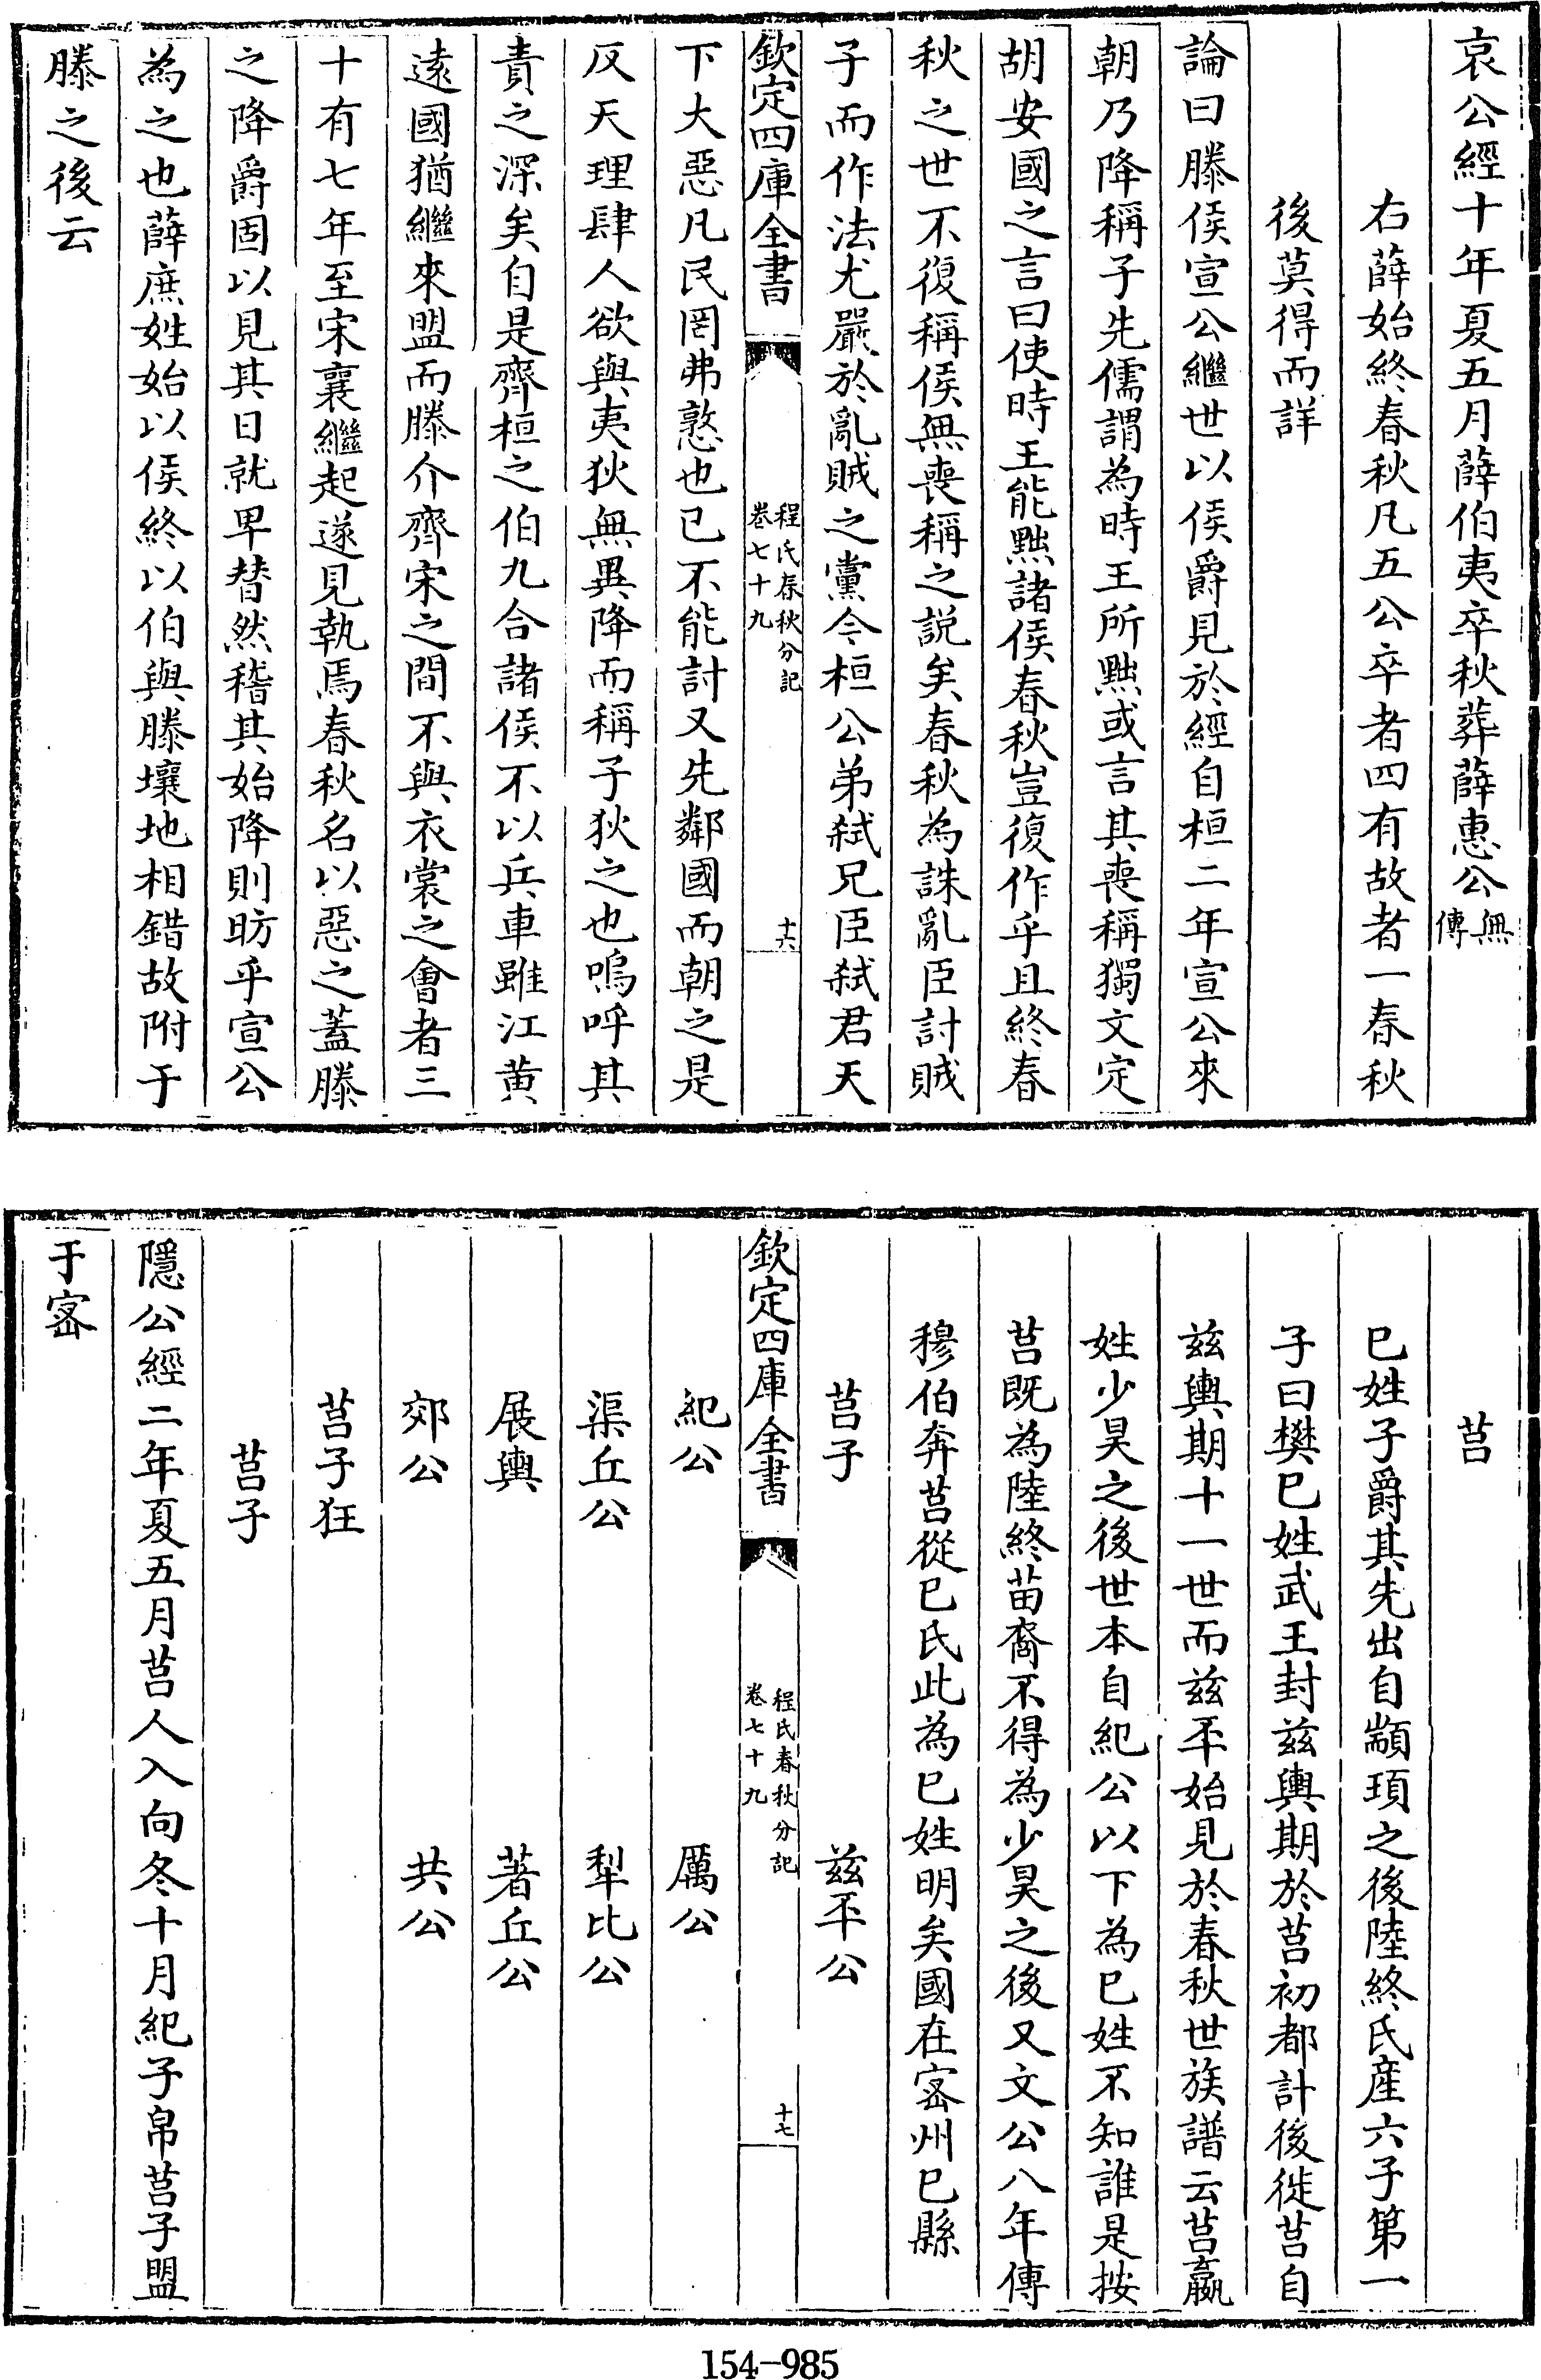 哀公經十年夏五月薛伯夷卒秋葬薛惠公無傳
右薛始終春秋凡五公卒者四有故者一春秋
後莫得而詳
論曰滕侯宣公繼世以侯爵見於經自桓二年宣公來
朝乃降稱子先儒謂為時王所黜或言其喪稱獨文定
胡安國之言曰使時王能黜諸侯春秋豈復作乎且終春
秋之世不復稱侯無喪稱之説矣春秋為誅亂臣討賊
子而作法尤嚴於亂賊之黨今桓公弟弑兄臣弑君天
欽定四庫全書
程氏春秋分記
卷七十九
十六
下大惡凡民罔弗憝也已不能討又先鄰國而朝之是
反天理肆人欲與夷狄無異降而稱子狄之也嗚呼其
責之深矣自是齊桓之伯九合諸侯不以兵車雖江黄
遠國猶繼來盟而滕介齊宋之間不與衣裳之會者三
十有七年至宋襄繼起遂見執焉春秋名以惡之蓋滕
之降爵固以見其日就卑替然稽其始降則昉乎宣公
為之也薛庶姓始以侯終以伯與滕壤地相錯故附于
滕之後云
莒
巳姓子爵其先出自顓頊之後陸終氏産六子第一
子曰樊巳姓武王封兹輿期於莒初都計後徙莒自
兹輿期十一世而兹平始見於春秋世族譜云莒嬴
姓少昊之後世本自紀公以下為巳姓不知誰是按
莒既為陸終苗裔不得為少昊之後又文公八年傳
穆伯奔莒從巳氏此為巳姓明矣國在密州巳縣
莒子　兹平公
欽定四庫全書
程氏春秋分記
卷七十九
十七
紀公　厲公
渠丘公　犁比公
展輿　著丘公
郊公　共公
莒子狂
莒子
隱公經二年夏五月莒人入向冬十月紀子帛莒子盟
于密
154-985